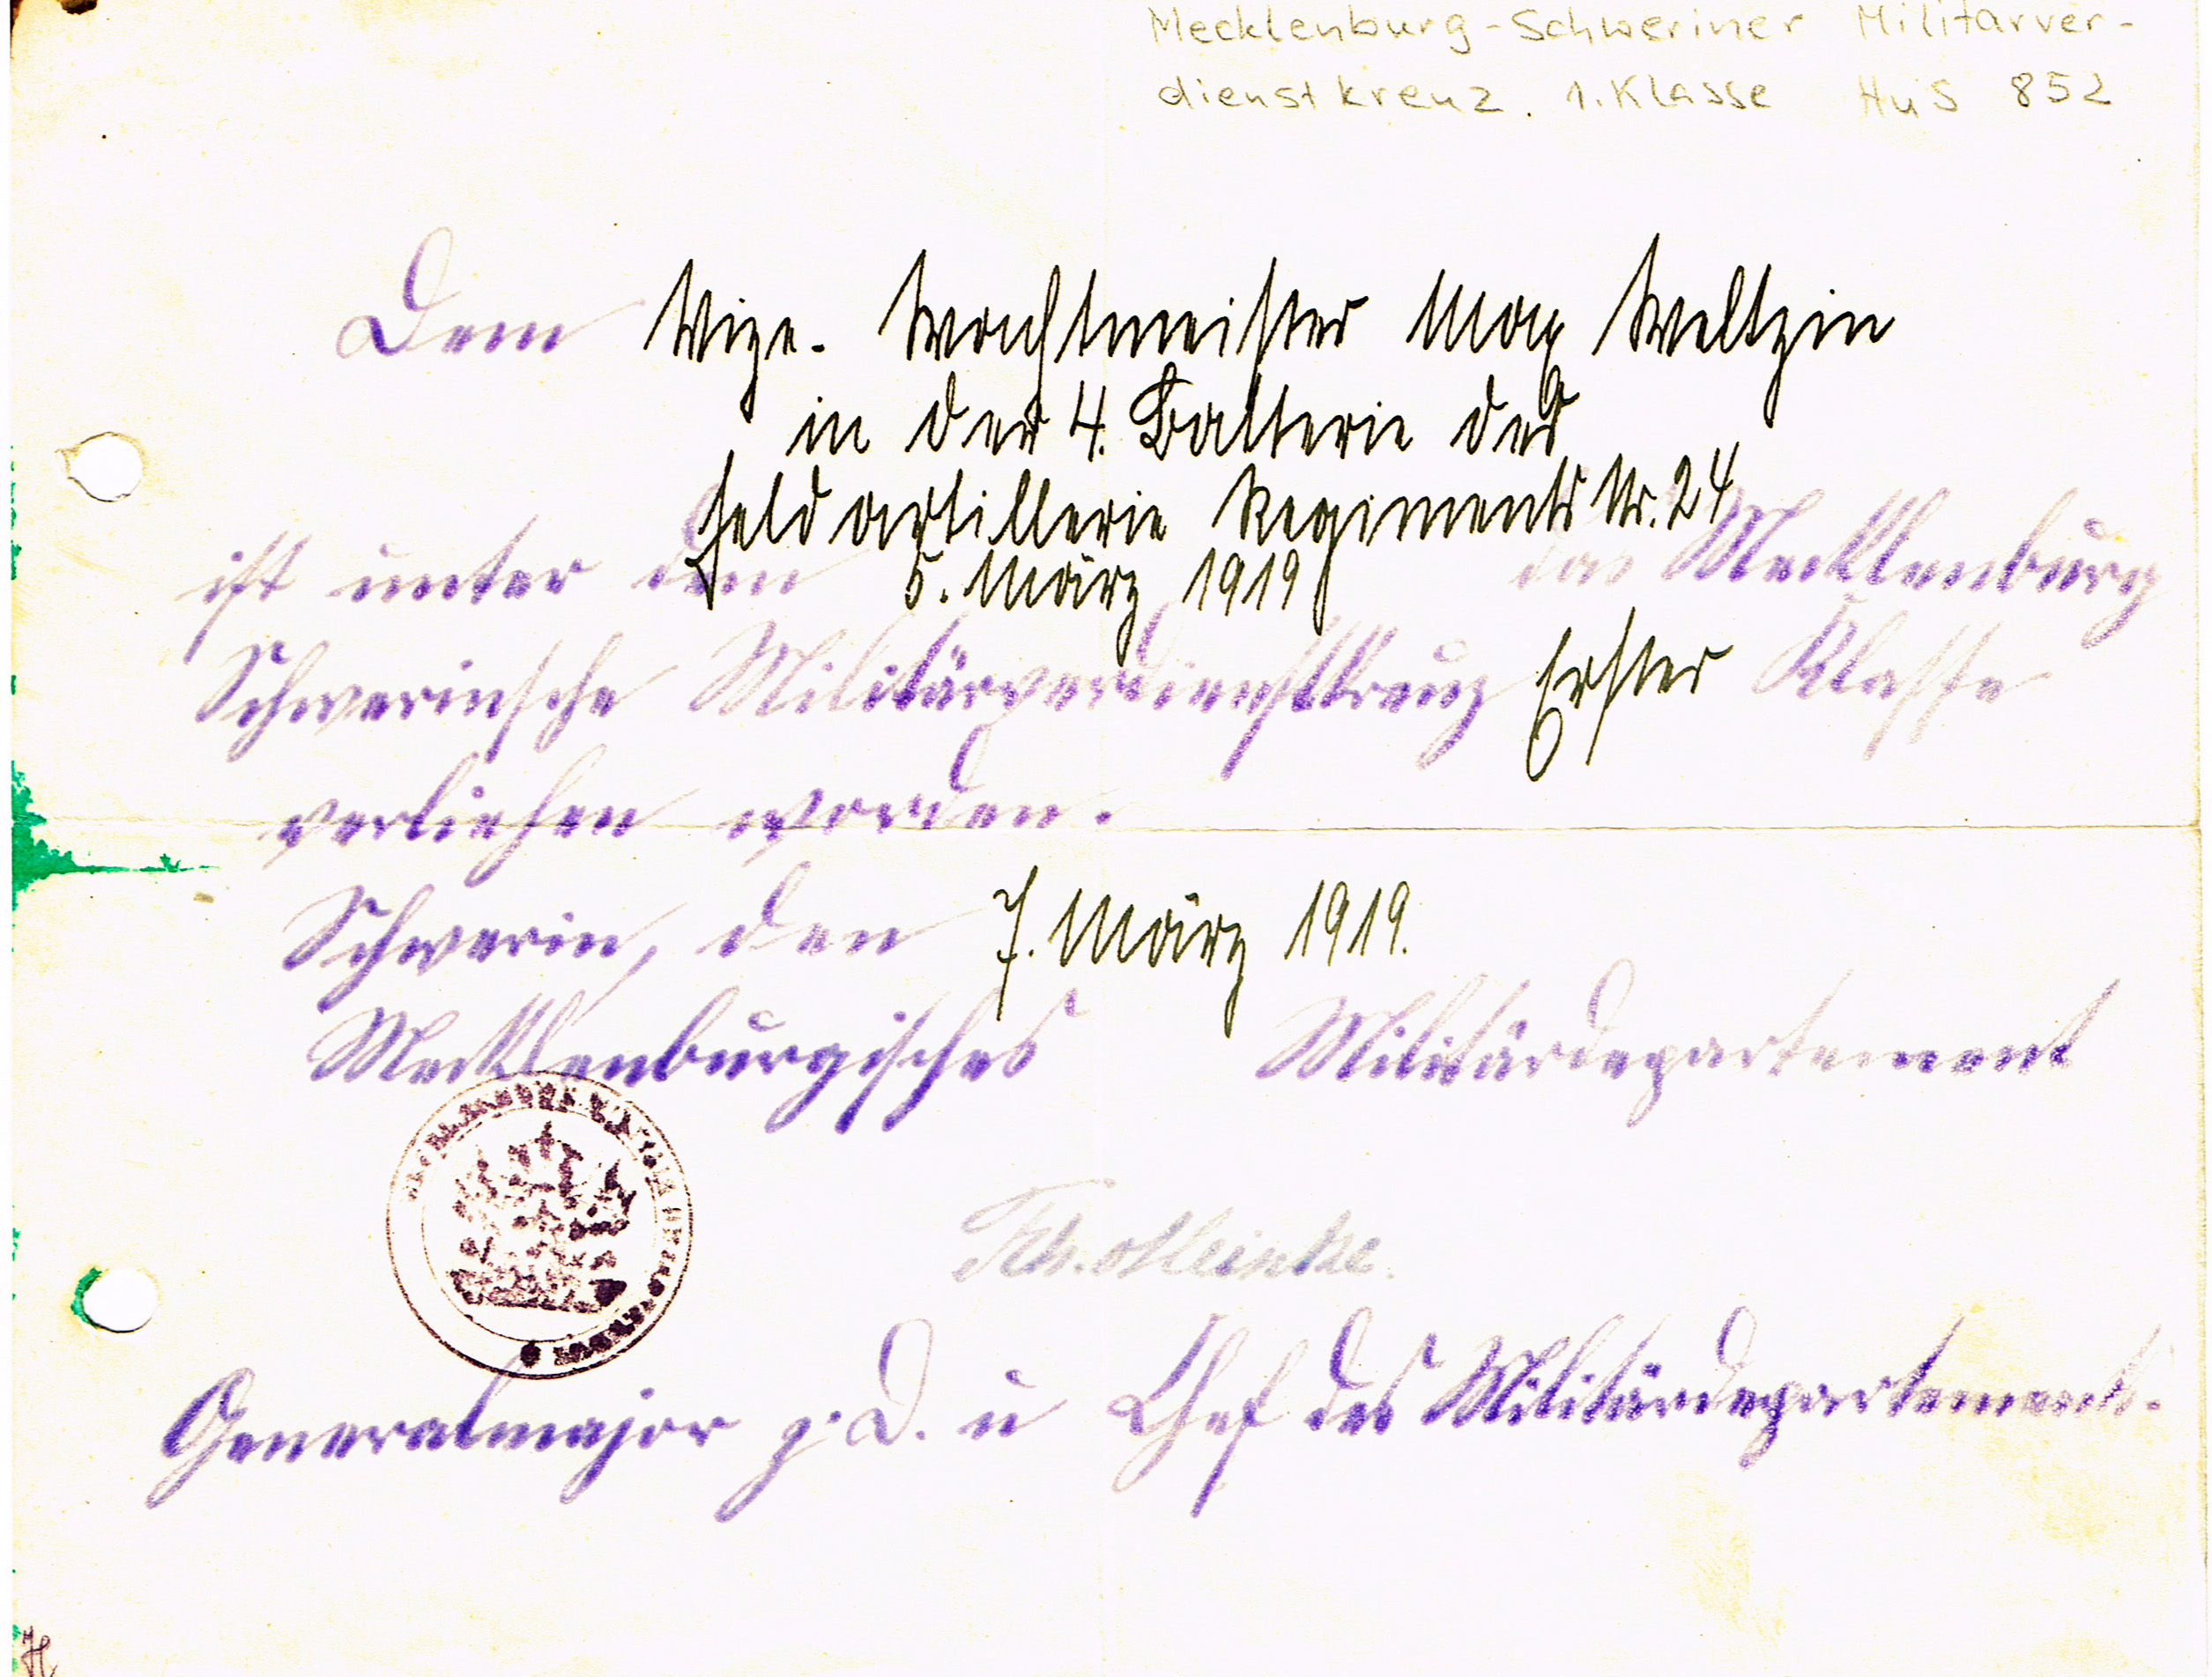 Mecklenburg-Schweriner Militärver-
dienstkreuz. 1. Klasse HuS 852
Dem Vize. Wachtmeister Max Weltzin
in der 4. Batterie des
Feldartillerie Regiments Nr. 24
ist unter dem 5. März 1919 das Mecklenburg
Schwerinsche Militärverdienstkreuz Erster Klasse
verliehen worden.
Schwerin, den 7. März 1919.
Mecklenburgisches Militärdepartement
Generalmajor z. D. u Chef des Militärdepartements.